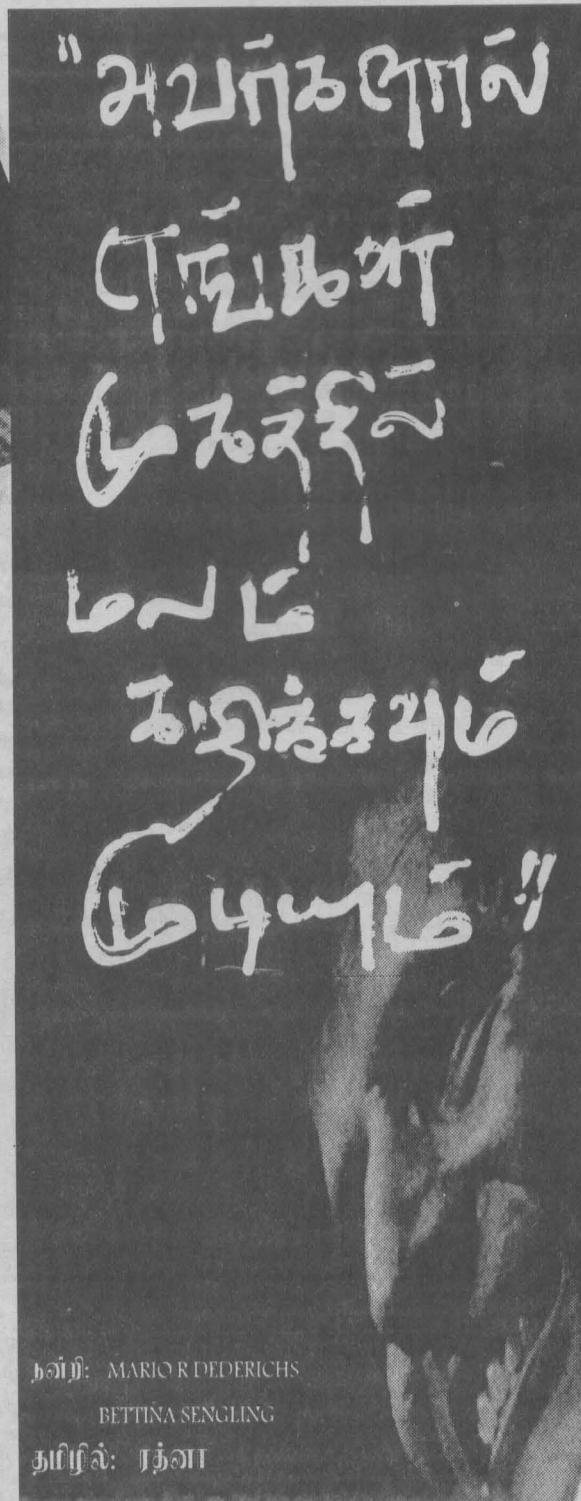 "அவர்களால்
எங்கள்
முகத்தில்
மலம்
கழிக்கவும்
முடியும்"
நன்றி: MARIO R DEDERICHS
BETTINA SENGLING
தமிழில்: ரத்னா